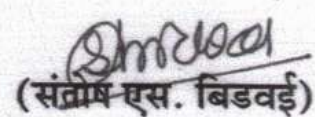 (संतोष एस. बिडवई)